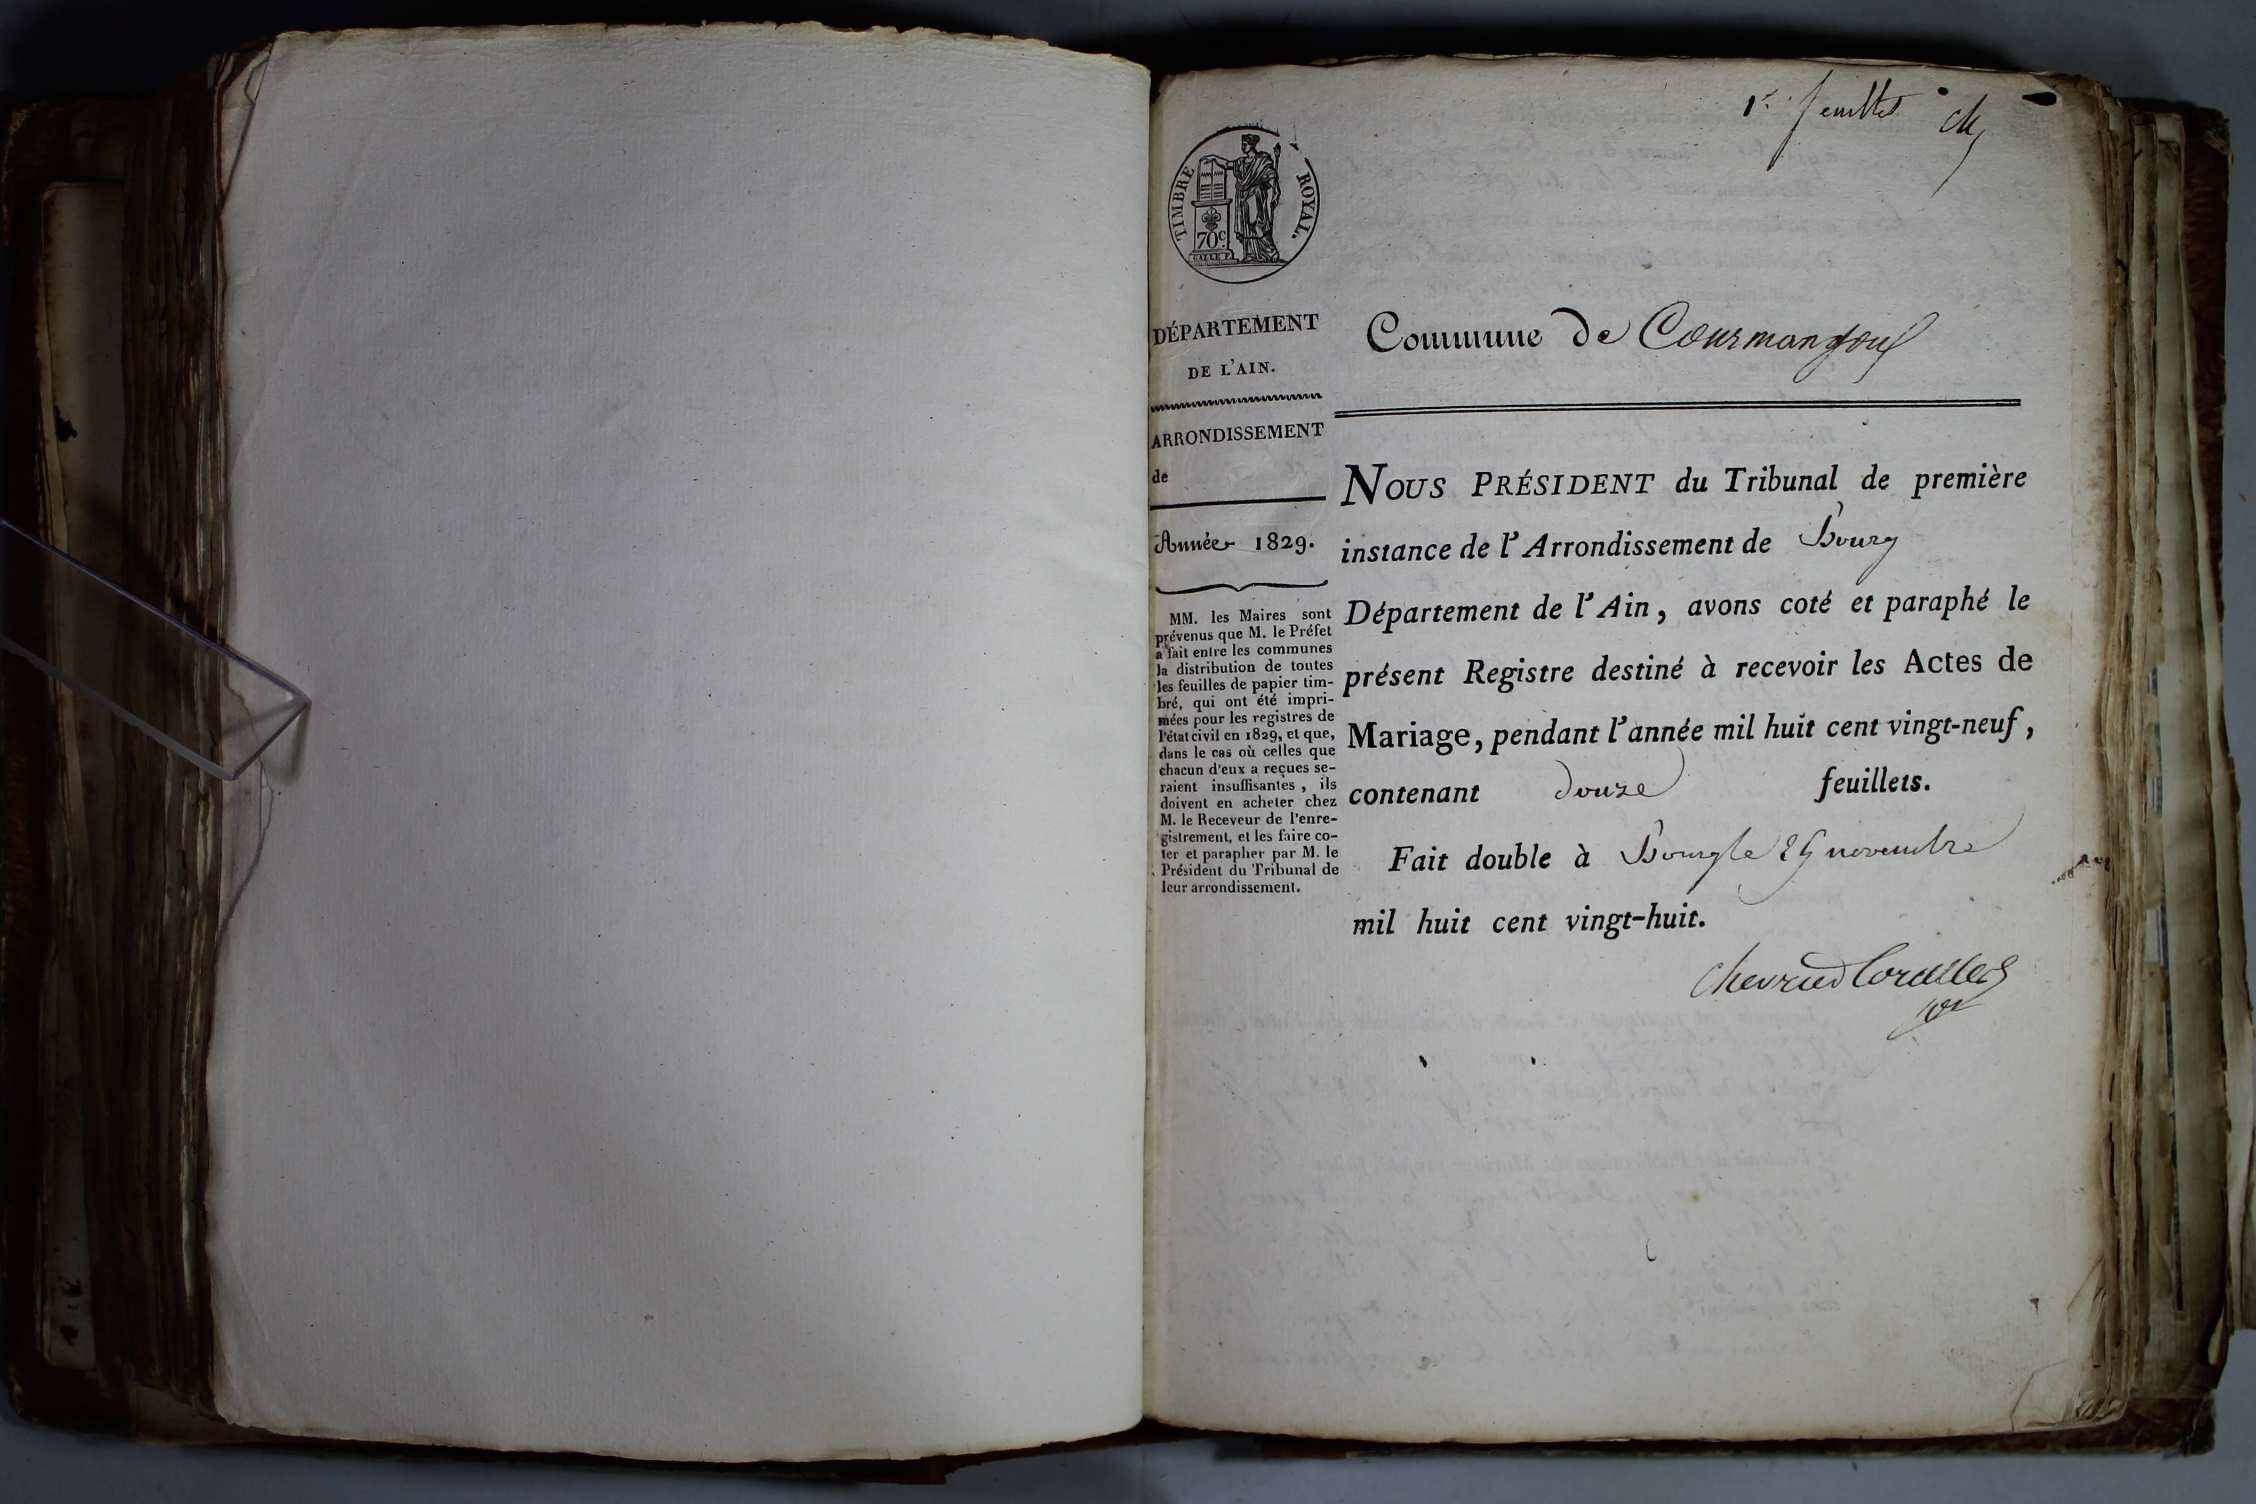 1r. feuillet
TIMBRE ROYAL.
70c.
DÉPARTEMENT
DE L'AIN.
ARRONDISSEMENT
de
Année 1829.
MM. les Maires sont
prévenus que M. le Préfet
a fait entre les communes
la distribution de toutes
les feuilles de papier tim-
bré, qui ont été impri-
mées pour les registres de
l'état civil en 1829, et que,
dans le cas où celles que
chacun d'eux a reçues se-
raient insuffisantes, ils
doivent en acheter chez
M. le Receveur de l'enre-
gistrement, et les faire co-
ter et parapher par M. le
Président du Tribunal de
leur arrondissement.
Commune de Courmangoux
NOUS PRÉSIDENT du Tribunal de première
instance de l'Arrondissement de Bourg
Département de l'Ain, avons coté et paraphé le
présent Registre destiné à recevoir les Actes de
Mariage, pendant l'année mil huit cent vingt-neuf,
contenant douze feuillets.
Fait double à Bourg le novembre
mil huit cent vingt-huit.